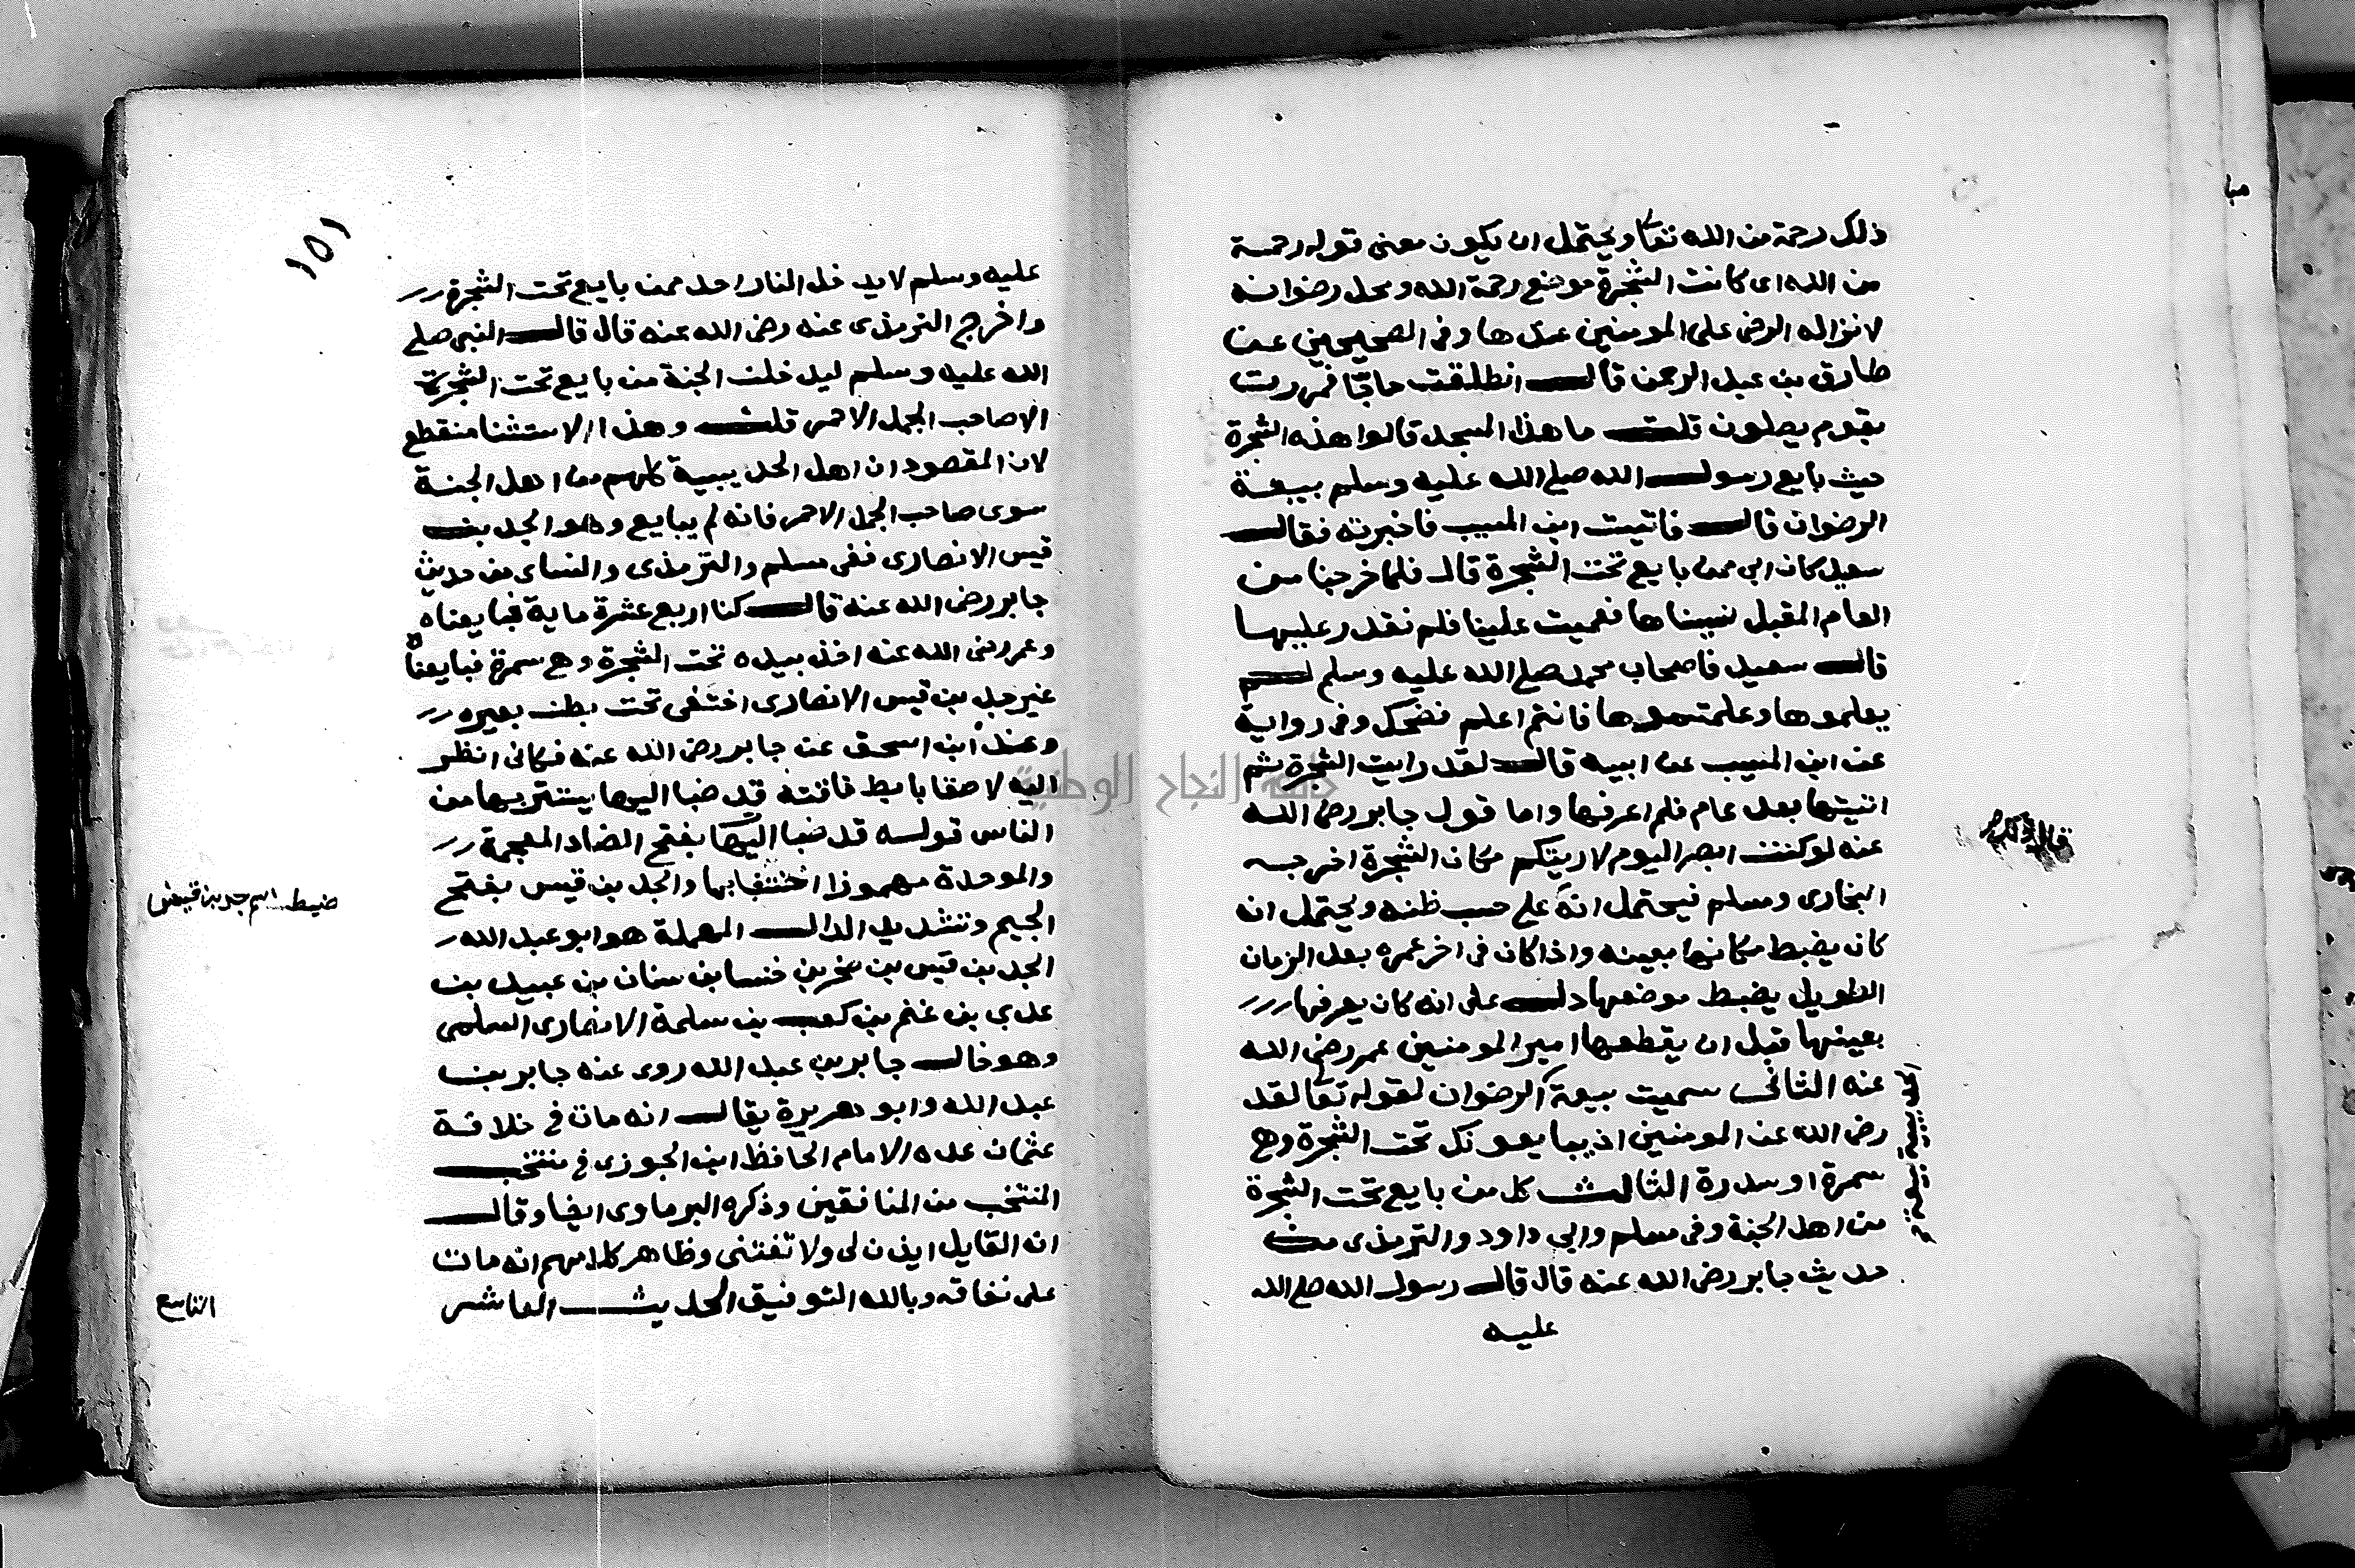 ذلك رحمة من الله تعا ويحتمل ان يكون معنى قوله رحمة
من الله اى كانت الشجرة موضع رحمة الله ومحل رضوانه
لانزاله الرضى على المومنين عندها وفى الصحيحين عن
طارق بن عبد الرحمن قال انطلقت حاجّا فمررت
بقوم يصلون قلت ما هذا المسجد قالوا هذه الشجرة
حيث بايع رسول الله صلى الله عليه وسلم بيعة
الرضوان قال فاتيت ابن المسيب فاخبرته فقال
سعيد كان ابى ممن بايع تحت الشجرة قال فلما خرجنا من
العام المقبل نسيناها فعميت علينا فلم نقدر عليها
قال سعيد فاصحاب محمد صلى الله عليه وسلم لم
يعلموها وعلمتموها فانتم اعلم فضحك وفى رواية
عن ابن المسيب عن ابيه قال لقد رايت الشجرة ثم
اتيتها بعد عام فلم اعرفها واما قول جابر رضى الله
عنه لو كنت ابصر اليوم لاريتكم مكان الشجرة اخرجه
البخارى ومسلم فيحتمل انه على حسب ظنه ويحتمل انه
كان يضبط مكانها بعينه واذا كان فى اخر عمره بعد الزمان
الطويل يضبط موضعها دل على انه كان يعرفها
بعينها قبل ان يقطعها امير المومنين عمر رضى الله
عنه الثانى سميت بيعة الرضوان لقوله تعا لقد
رضى الله عن المومنين اذ يبايعونك تحت الشجرة وهى
سمرة او سدرة الثالث كل من بايع تحت الشجرة
من اهل الجنة وفى مسلم وابى داود والترمذى من
حديث جابر رضى الله عنه قال قال رسول الله صلى الله
عليه
١٥١
عليه وسلم لا يدخل النار احد ممن بايع تحت الشجرة
واخرج الترمذى عنه رضى الله عنه قال قال النبى صلى
الله عليه وسلم ليدخلن الجنة من بايع تحت الشجرة
الا صاحب الجمل الاحمر قلت وهذا الاستثنا منقطع
لان المقصود ان اهل الحديبية كلهم من اهل الجنة
سوى صاحب الجمل الاحمر فانه لم يبايع وهو الجد بن
قيس الانصارى ففى مسلم والترمذى والنساى من حديث
جابر رضى الله عنه قال كنا اربع عشرة ماية فبايعناه
وعمر رضى الله عنه اخذ بيده تحت الشجرة وهى سمرة فبايعناه
غير جد بن قيس الانصارى اختفى تحت بطن بعيره
وعند ابن اسحق عن جابر رضى الله عنه فكانى انظر
اليه لاصقا بابط ناقته قد ضبا اليها يستتر بها من
الناس قوله قد ضبا اليها بفتح الضاد المعجمة
والموحدة مهموزا اختفا بها والجد بن قيس بفتح
الجيم وتشديد الدال المهملة هو ابو عبد الله
الجد بن قيس بن صخر بن خنسا بن سنان بن عبيد بن
عدى بن غنم بن كعب بن سلمة الانصارى السلمى
وهو خال جابر بن عبد الله روى عنه جابر بن
عبد الله وابو هريرة يقال انه مات فى خلافة
عثمان عده الامام الحافظ ابن الجوزى فى منتخب
المنتخب من المنافقين وذكره البرماوى ايضا وقال
انه القايل ايذن لى ولا تفتنى وظاهر كلامهم انه مات
على نفاقه وبالله التوفيق الحديث العاشر
ضبط اسم جد بن قيس
التاسع
جامعة النجاح الوطنية